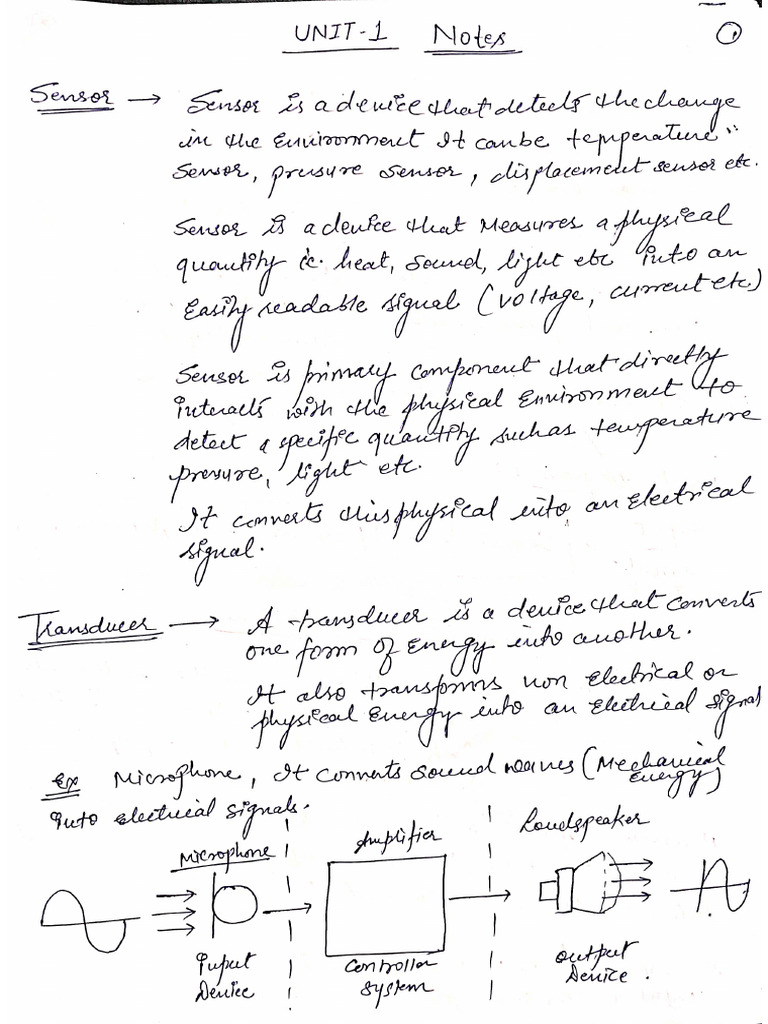 UNIT-1 Notes
1
Sensor → Sensor is a device that detects the change
in the Environment It can be temperature
Sensor, presure sensor, displacement sensor etc.
Sensor is a device that Measures a physical
quantity ie. heat, sound, light etc into an
Easily readable signal (voltage, current etc)
Sensor is primary component that directly
interacts with the physical Environment to
detect a specific quantity such as temperature
pressure, light etc.
It converts this physical into an Electrical
signal.
Transducer → A transducer is a device that converts
one form of Energy into another.
It also transforms non Electrical or
physical Energy into an Electrical signal
Ex Microphone, It converts sound waves (Mechanical
Energy)
into electrical signals.
Microphone
Amplifier
Loudspeaker
Input
Device
Controller
System
Output
Device.